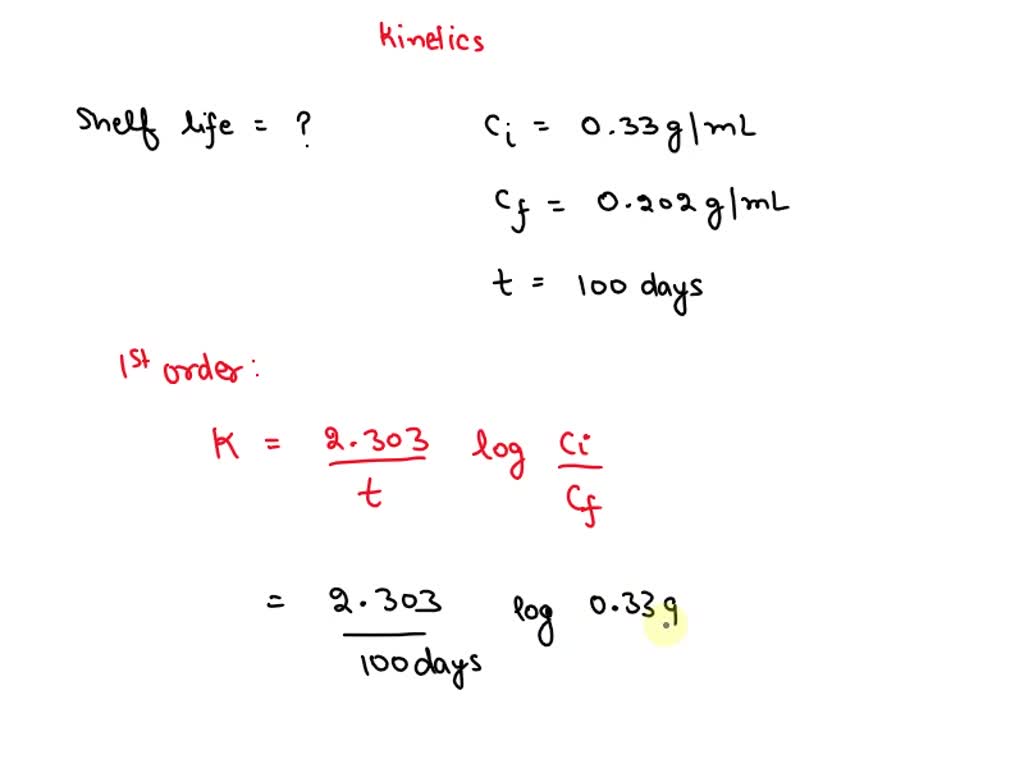 Kinetics
Shelf life = ?
Ci = 0.33 g/mL
Cf = 0.202 g/mL
t = 100 days
1st order:
K = 2.303/t log Ci/Cf
= 2.303/100 days log 0.33 g